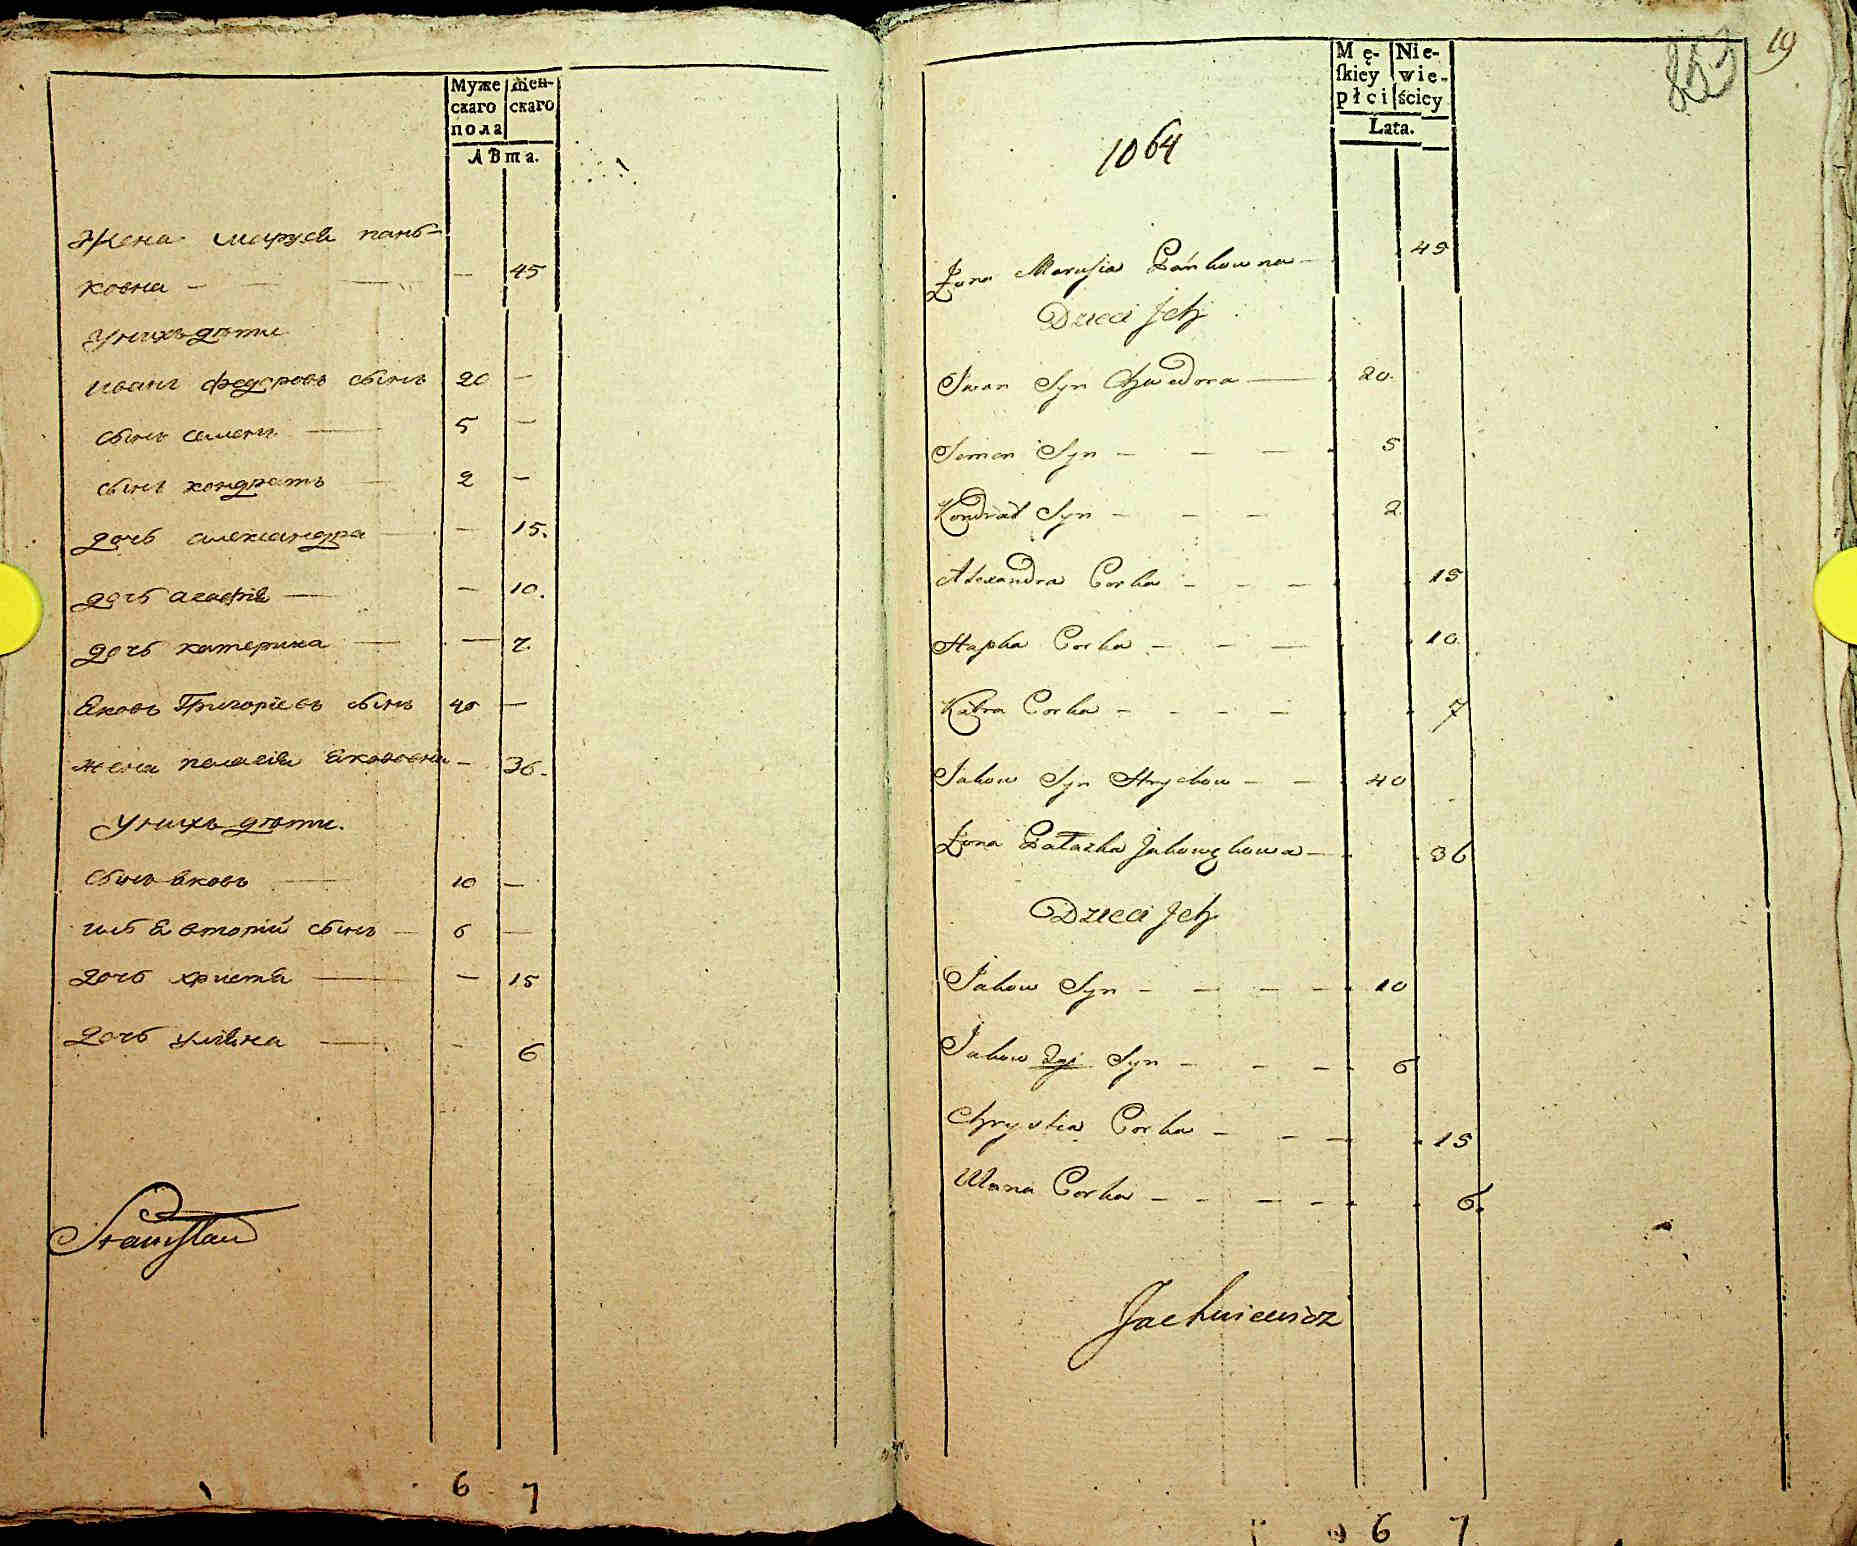 Муже
скаго
пола
Жен-
скаго
Лѣта.
Жена Маруся Панъ-
ковна — — 45
У нихъ дѣти
Иванъ Федоровъ сынъ 20 —
сынъ Семенъ — 5 —
сынъ Кондратъ — 2 —
дочь Александра — — 15.
дочь Агафія — — 10.
дочь Катерина — — 7.
Яковъ Григоріевъ сынъ 40 —
Жена Пелагія Якововна — 36.
У нихъ дѣти.
сынъ Яковъ — 10 —
Яковъ вторій сынъ — 6 —
дочь Христя — — 15
дочь Уляна — — 6
Stanisław
6 7
19
Mę-
ſkiey
płci
Nie-
wie-
ściey
Lata.
1064
Żona Marusia Pańkowna — 45
Dzieci Ich
Iwan Syn Chwedora — 20.
Semen Syn — — — 5
Kondrat Syn — — — 2
Alexandra Corka — — — 15
Hapka Corka — — — 10
Katra Corka — — — — 7
Jakow Syn Hryckow — — 40
Żona Pałazka Jakowykowa — 36
Dzieci Ich
Jakow Syn — — — — 10
Jakow 2gi Syn — — — 6
Chrystia Corka — — — 15
Ulana Corka — — — — 6.
Jachniewicz
6 7